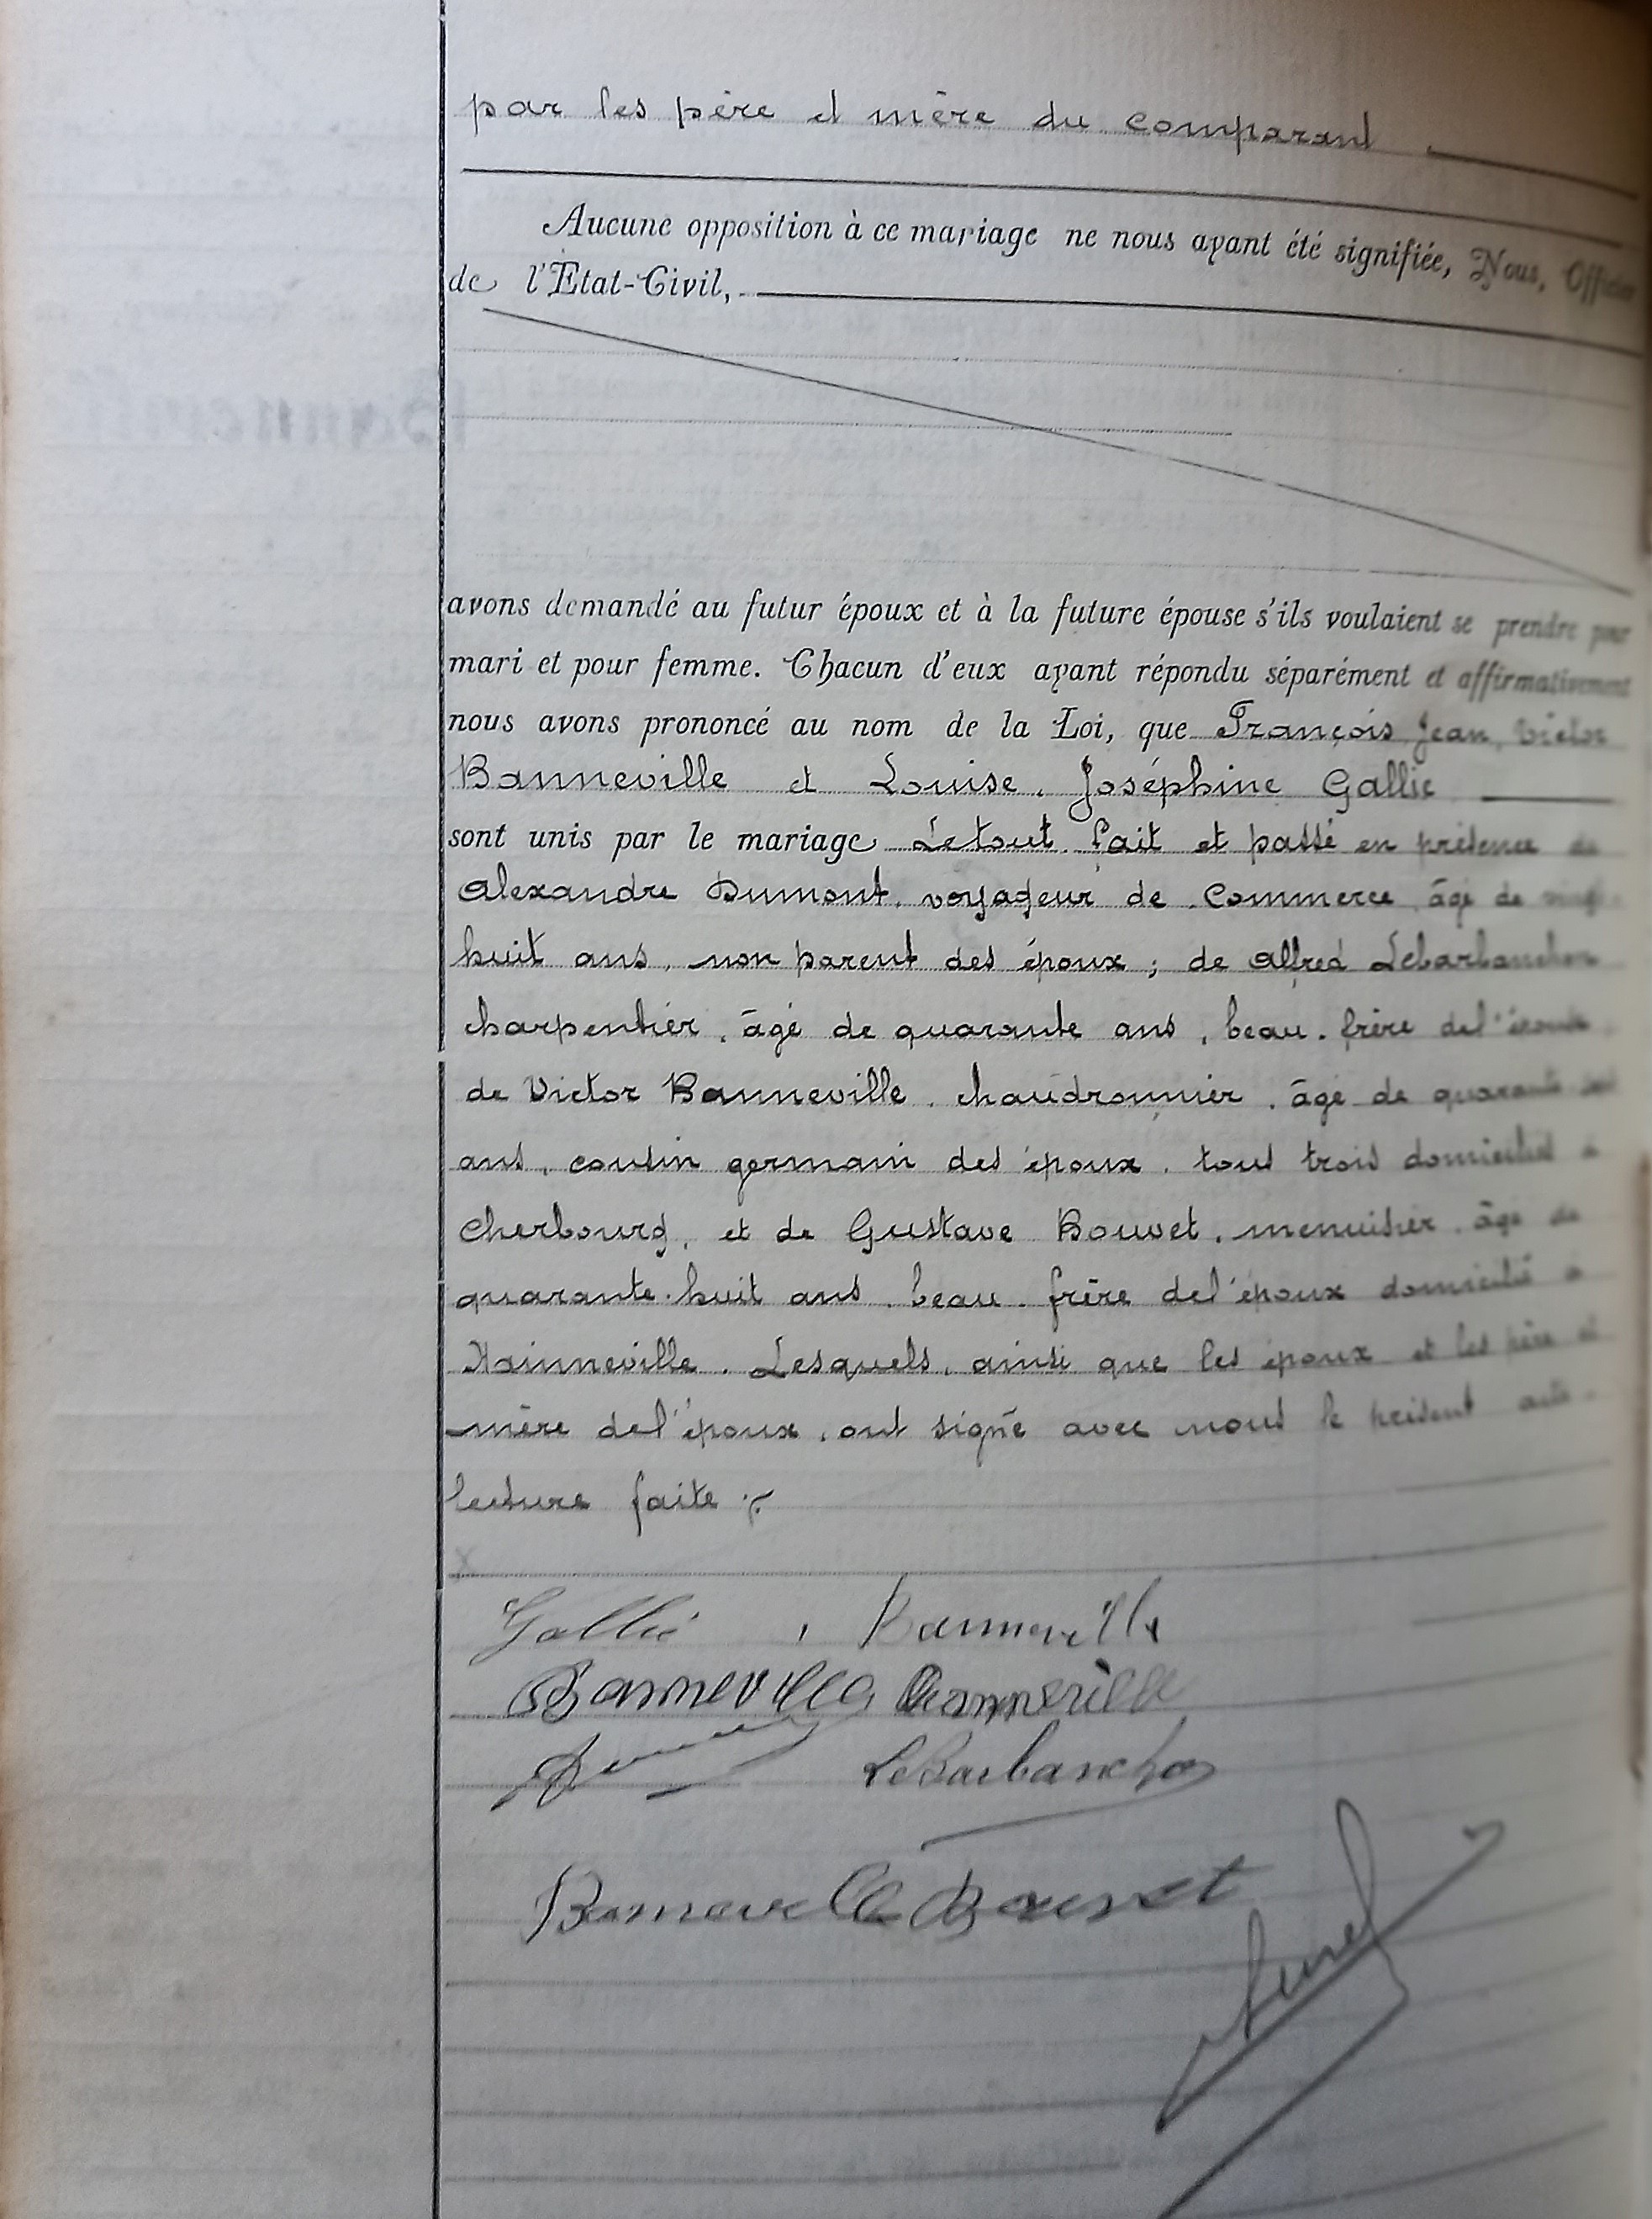 par les père et mère du comparant
Aucune opposition à ce mariage ne nous ayant été signifiée, Nous, Officier
de l'État-Civil,
avons demandé au futur époux et à la future épouse s'ils voulaient se prendre pour
mari et pour femme. Chacun d'eux ayant répondu séparément et affirmativement
nous avons prononcé au nom de la Loi, que François, Jean, Victor
Banneville et Louise, Joséphine Gallie
sont unis par le mariage Le tout fait et passé en présence de
Alexandre Dumont, voyageur de Commerce âgé de vingt
huit ans, non parent des époux ; de Alfred Lebarbanchon
charpentier, âgé de quarante ans, beau-frère de l'époux
de Victor Banneville, chaudronnier, âgé de quarante
ans, cousin germain des époux, tous trois domiciliés à
Cherbourg, et de Gustave Bouvet, menuisier, âgé de
quarante-huit ans, beau-frère de l'époux domicilié à
Hainneville. Lesquels, ainsi que les époux et les père et
mère de l'époux, ont signé avec nous le présent acte
lecture faite ./.
Gallie Banneville
Banneville Banneville
LeBarbanchon
Banneville Bouvet